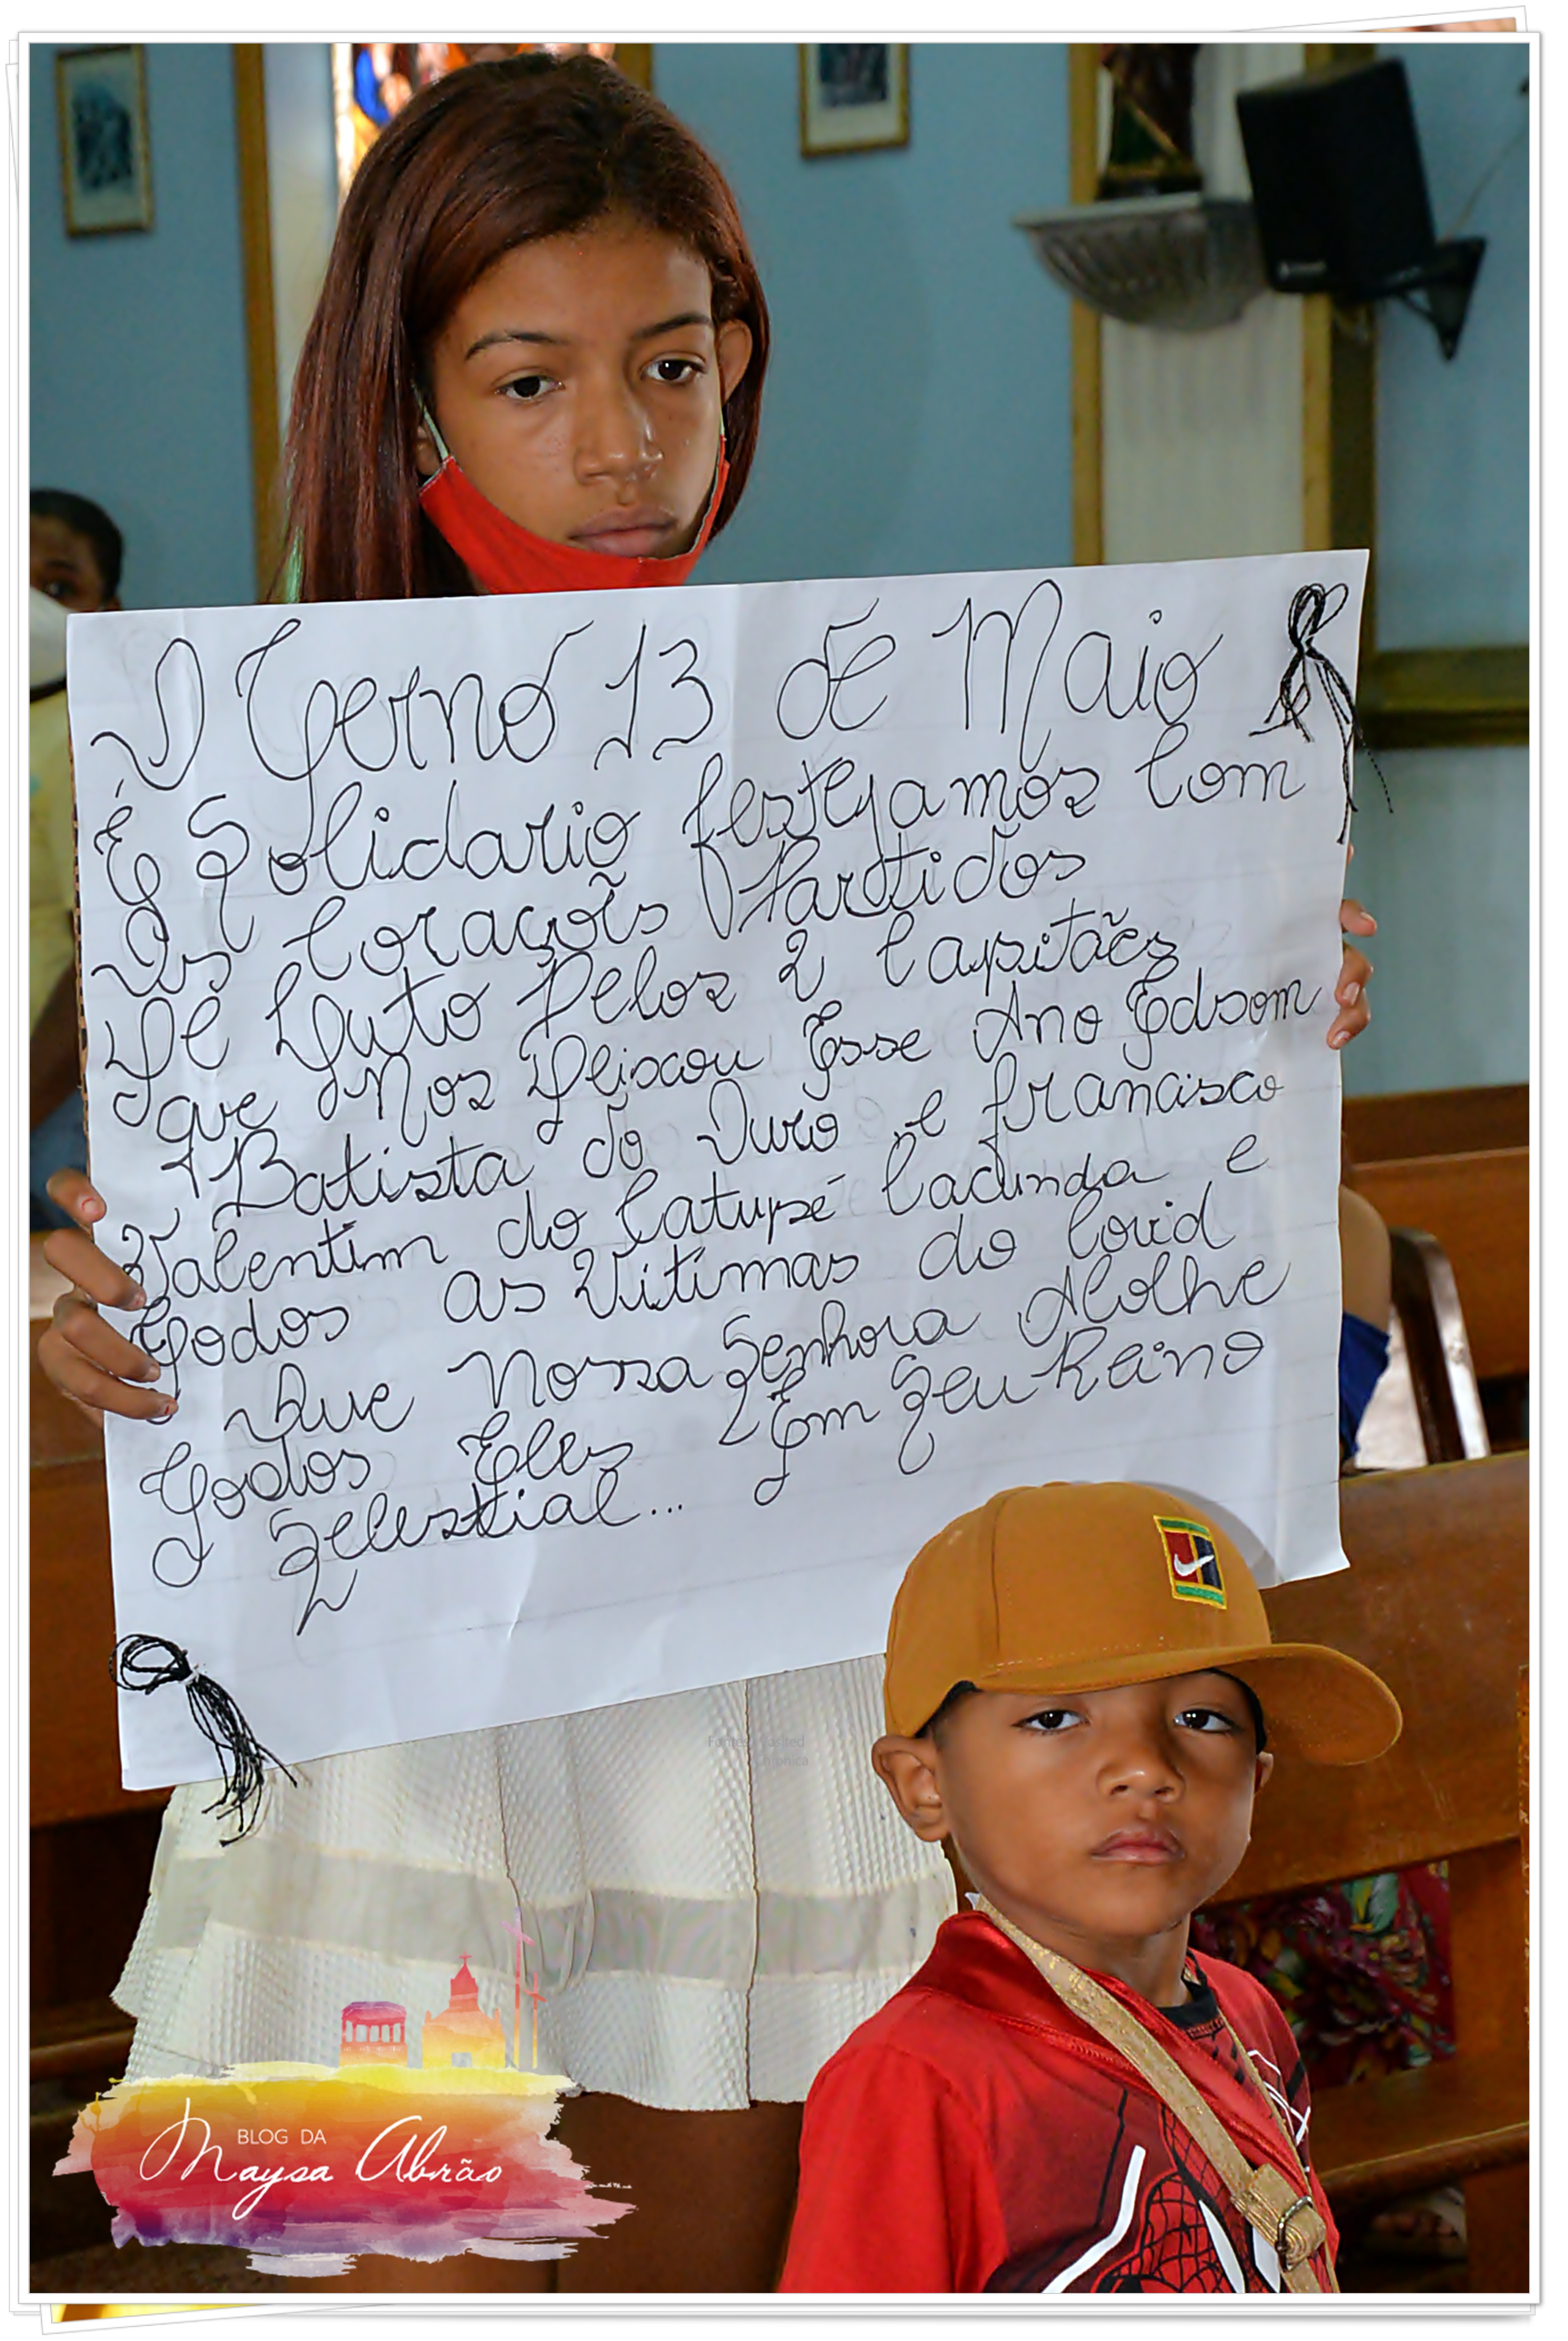 O Terno 13 de Maio
É Solidario festejamos Com
Os Coraçoẽs Partidos
De Luto Pelos 2 Capitães
que Nos Deixou Esse Ano Edsom
Batista do Ouro e francisco
Valentim do Catupé Cacunda e
Todos as Vitimas do Covid
Que Nossa Senhora Acolhe
Todos Eles Em Seu Reino
Selestial...
BLOG DA
Maysa Abrão